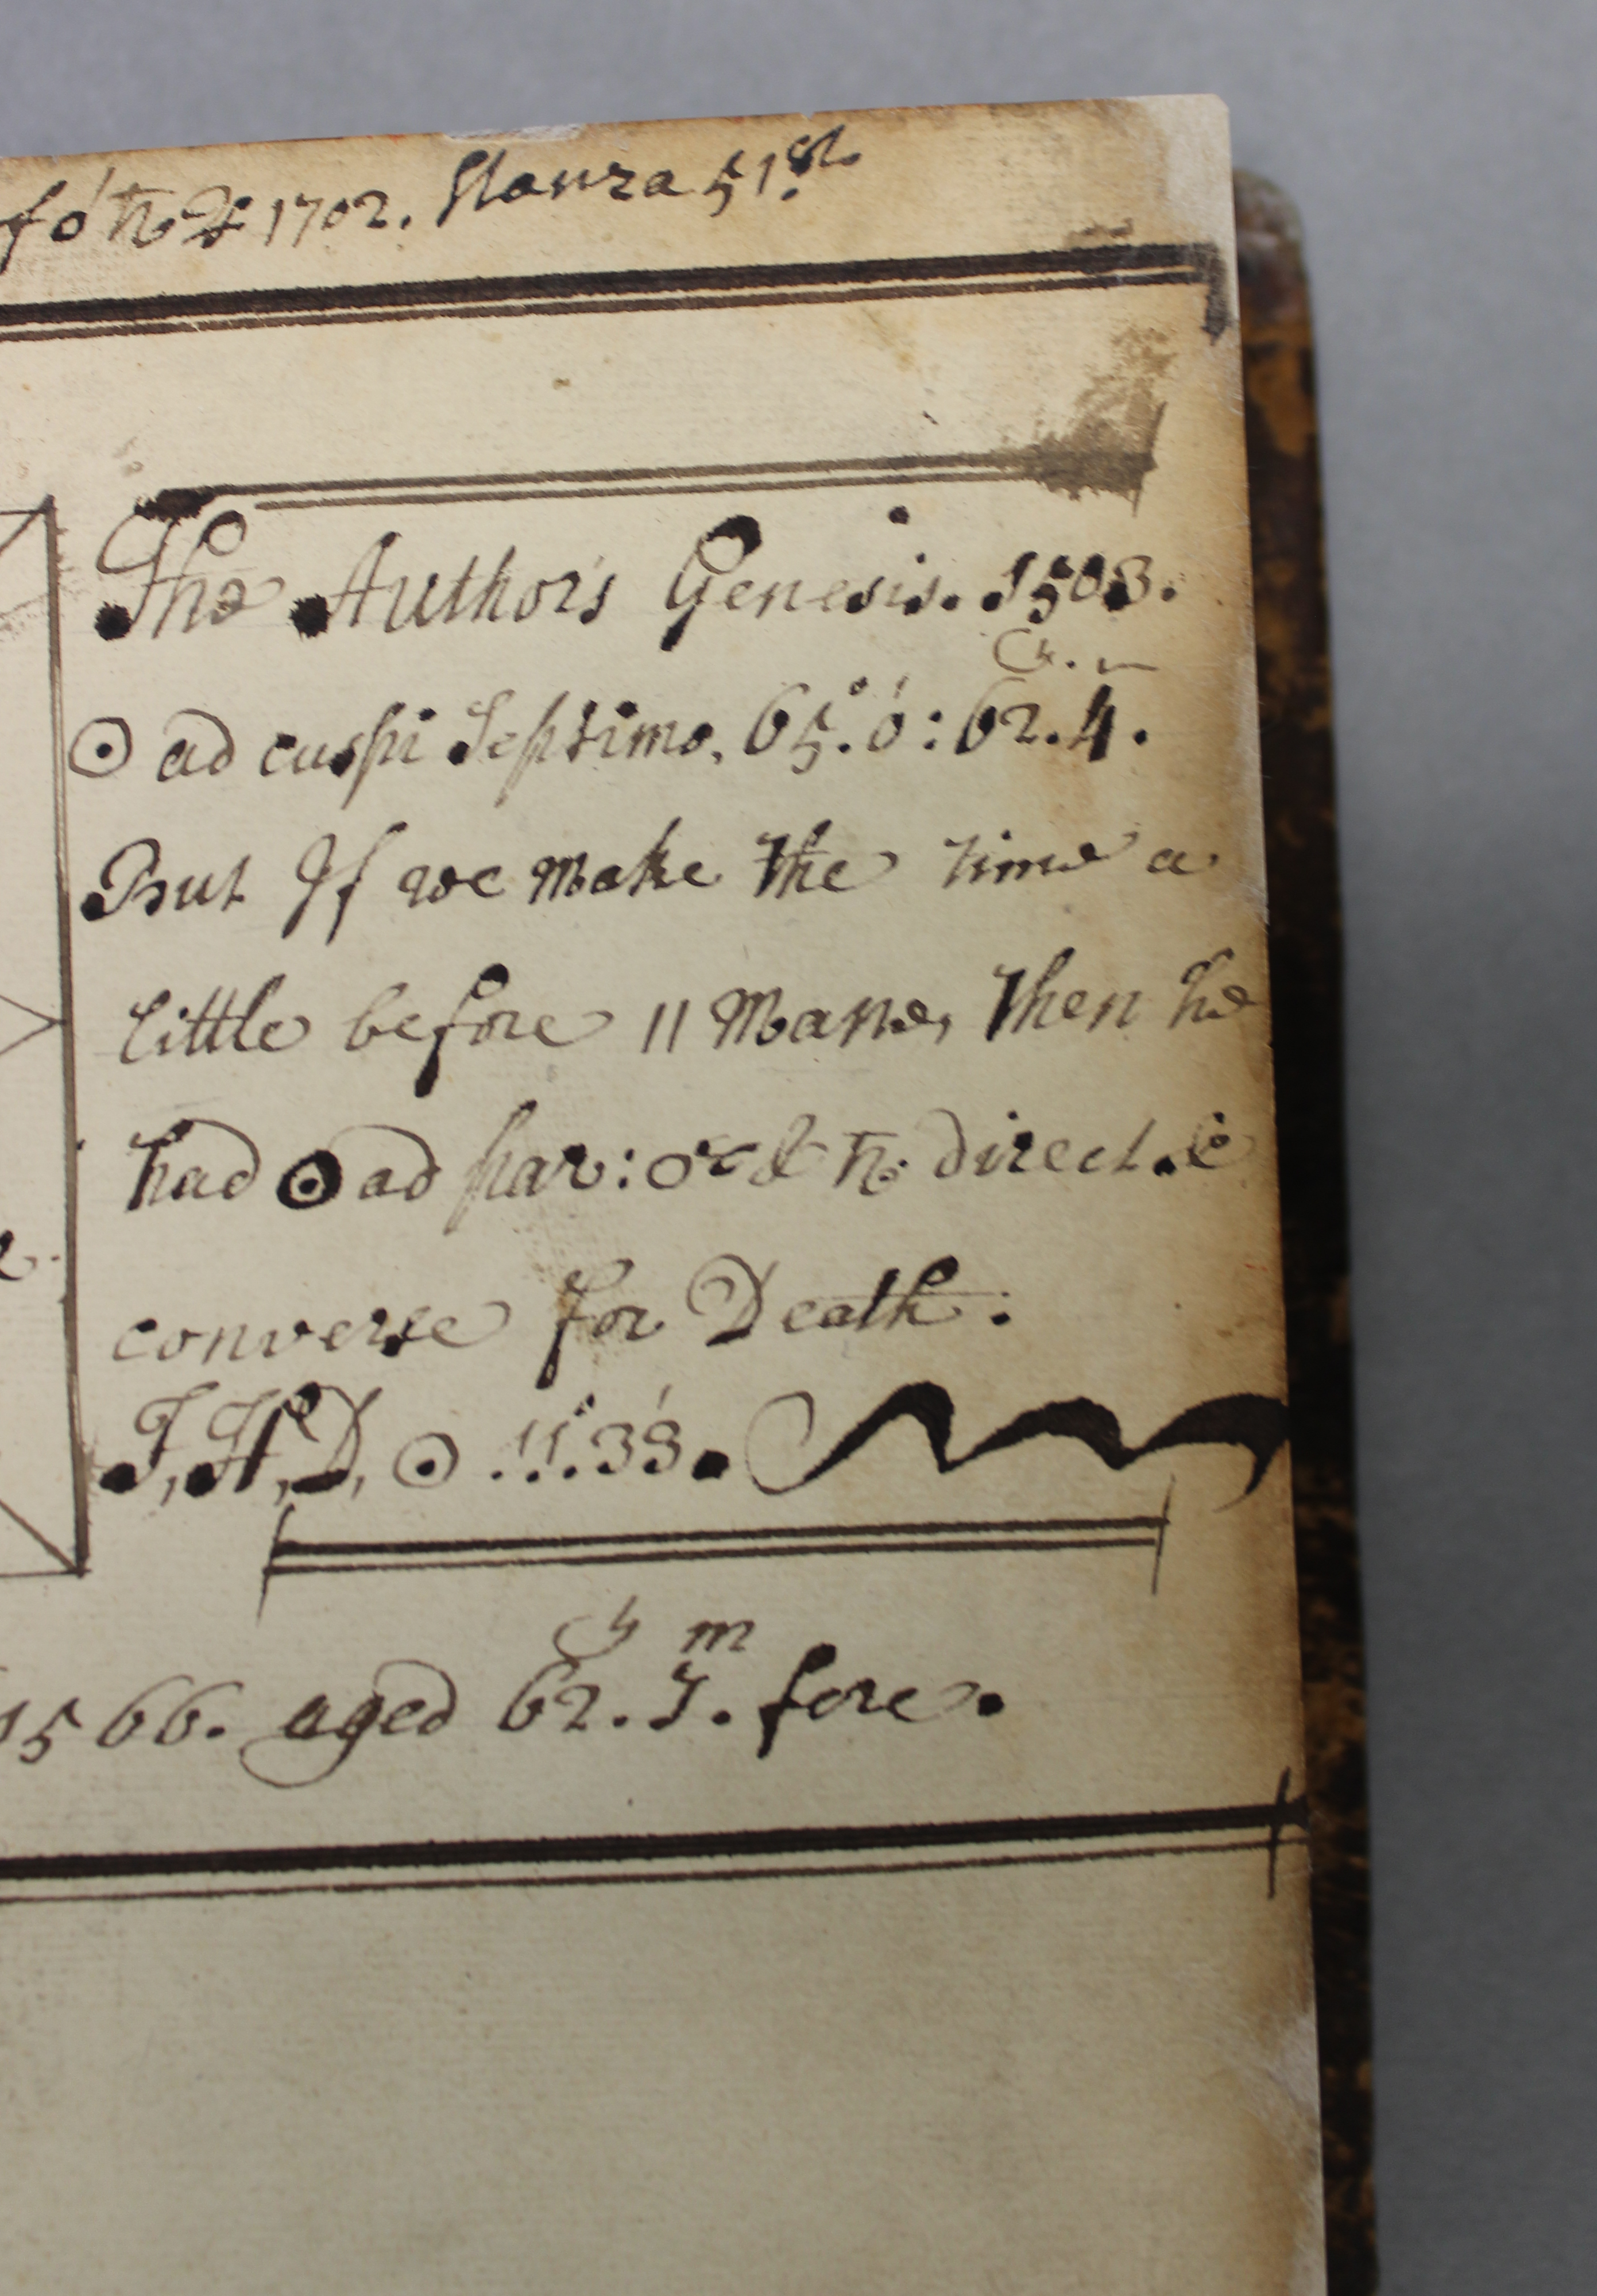 1702. Stanza 51st
The Author's Genesis. 1503.
☉ ad cuspi Septimo, 65°.0': 62.4.
But If we make the time a
little before 11 Mane, then he
had ☉ ad par: ♂ & ♄ direct. &
converse for Death:
J, H, D, ☉ .11°.33'.
1566. aged 62. fere.